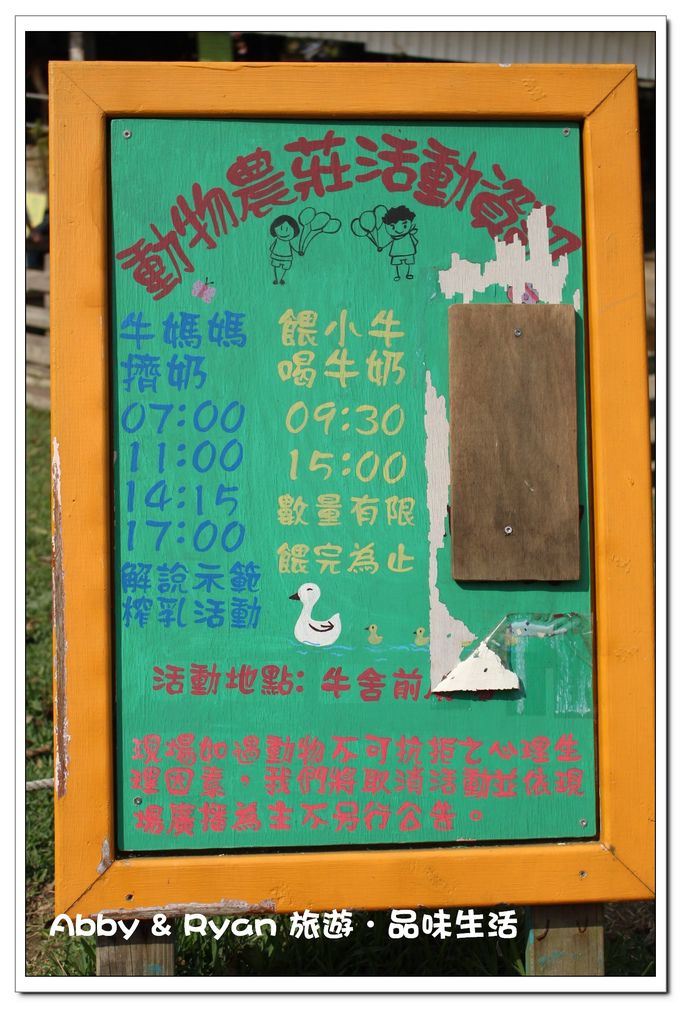 動物農莊活動資訊
牛媽媽
擠奶
07:00
11:00
14:15
17:00
解說示範
榨乳活動
餵小牛
喝牛奶
09:30
15:00
數量有限
餵完為止
活動地點: 牛舍前
現場如遇動物不可抗拒之心理生
理因素，我們將取消活動並依現
場廣播為主不另行公告。
Abby & Ryan 旅遊·品味生活